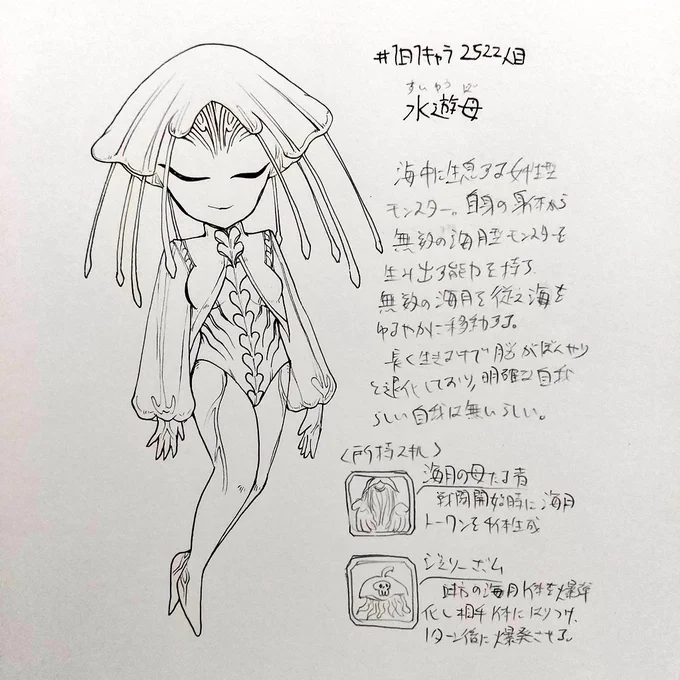 #1日1キャラ 2522人目
すいゆうぼ
水遊母
海中に生息する女性型
モンスター。自身の身体から
無数の海月型モンスターを
生み出す能力を持つ。
無数の海月を従え海を
ゆるやかに移動する。
長く生きすぎて脳がぼんやり
と退化しており、明確な自我
らしい自我は無いらしい。
〈所持スキル〉
海月の母たる者
戦闘開始時に海月
トークンを4体生成
ジェリーボム
味方の海月1体を爆弾
化し相手1体にはりつけ、
1ターン後に爆発させる。